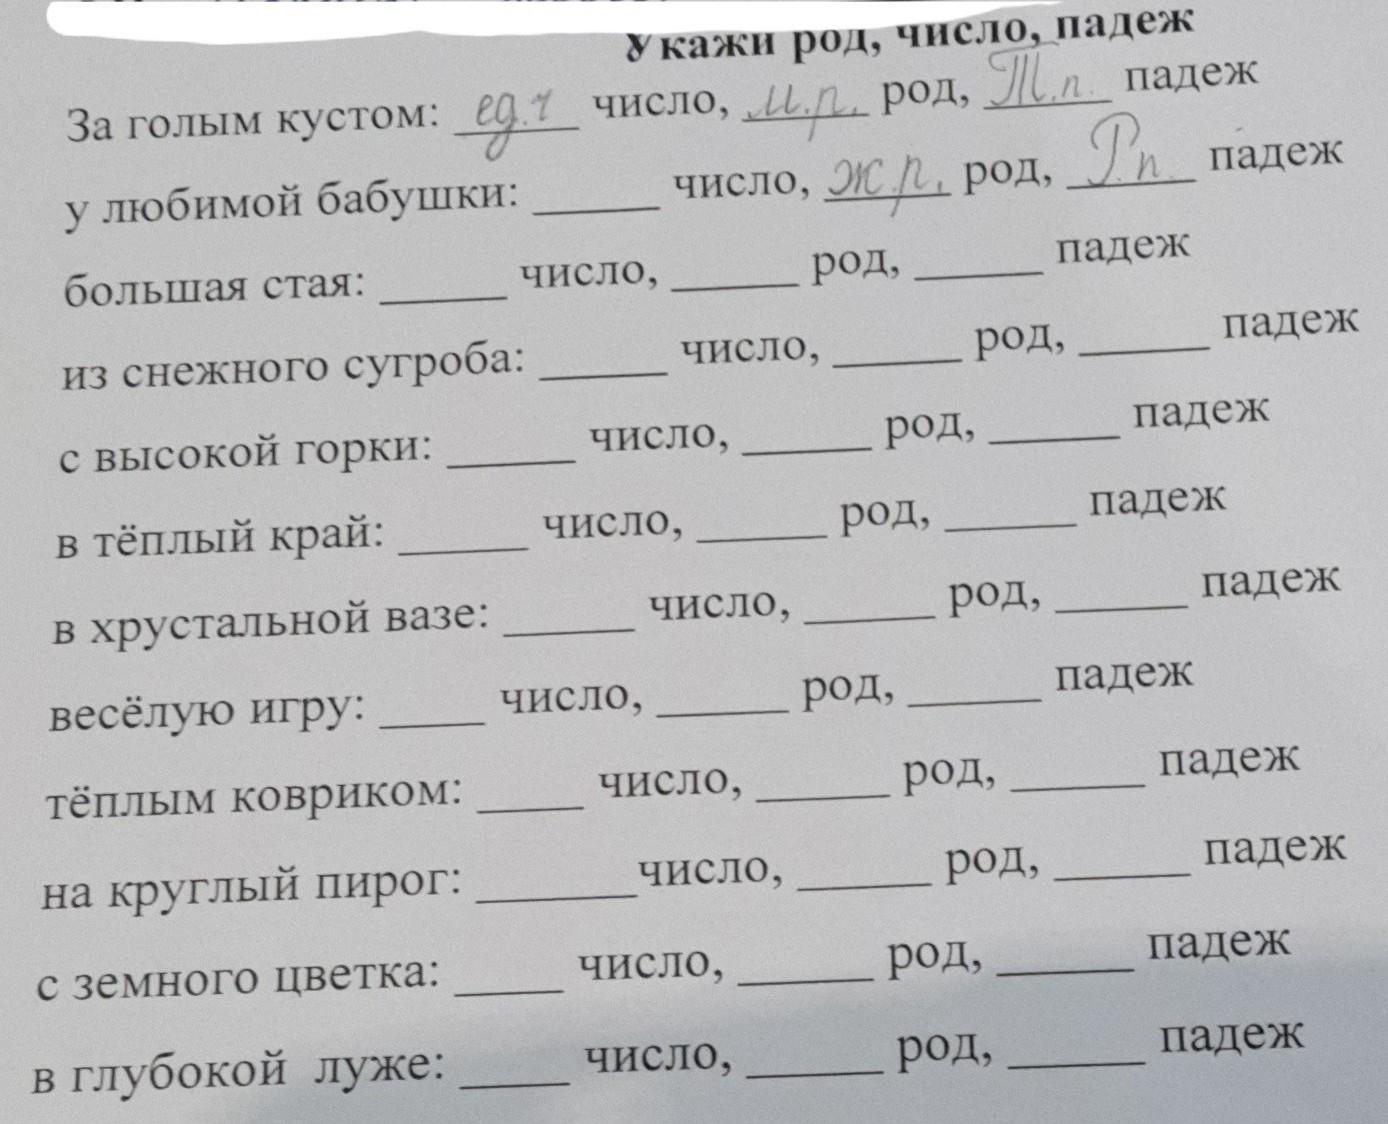 Укажи род, число, падеж
За голым кустом: ед.ч число, м.р. род, Т.п. падеж
у любимой бабушки: ______ число, ж.р. род, Р.п. падеж
большая стая: ______ число, ______ род, ______ падеж
из снежного сугроба: ______ число, ______ род, ______ падеж
с высокой горки: ______ число, ______ род, ______ падеж
в тёплый край: ______ число, ______ род, ______ падеж
в хрустальной вазе: ______ число, ______ род, ______ падеж
весёлую игру: _____ число, ______ род, ______ падеж
тёплым ковриком: _____ число, ______ род, ______ падеж
на круглый пирог: _______число, ______ род, ______ падеж
с земного цветка: _____ число, ______ род, ______ падеж
в глубокой луже: _____ число, ______ род, ______ падеж